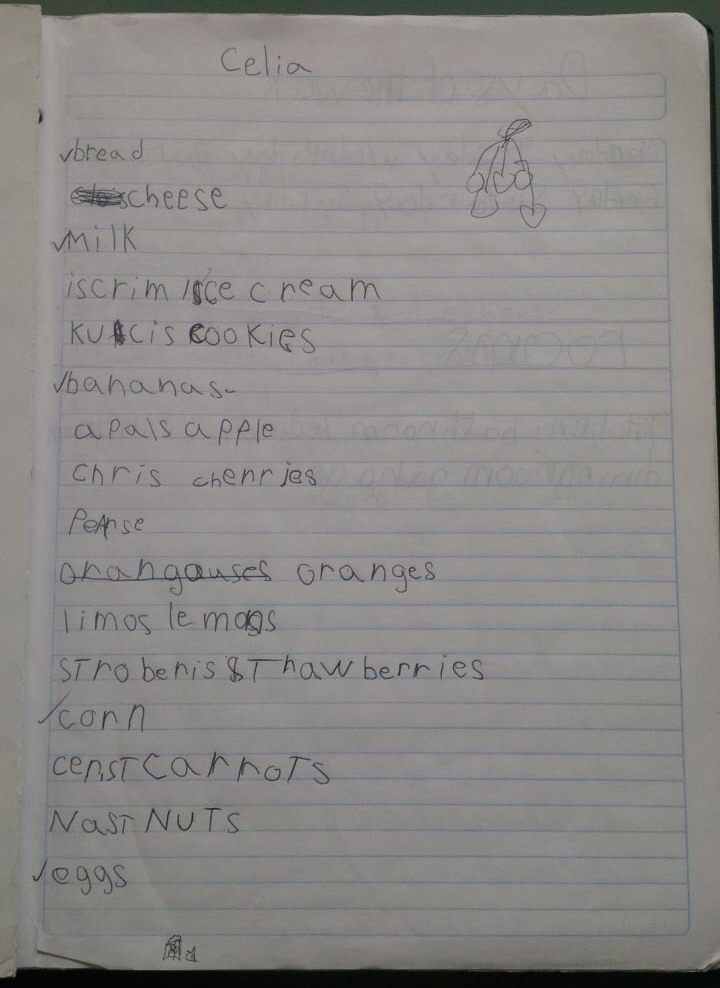 Celia
bread
cheese
MilK
iscrim ice cream
KUKcis cookies
bananas
apals apple
Chris cherries
Pearse
orangauses oranges
limos lemons
STroberis STrawberries
corn
cersT carroTs
NasT NUTs
eggs